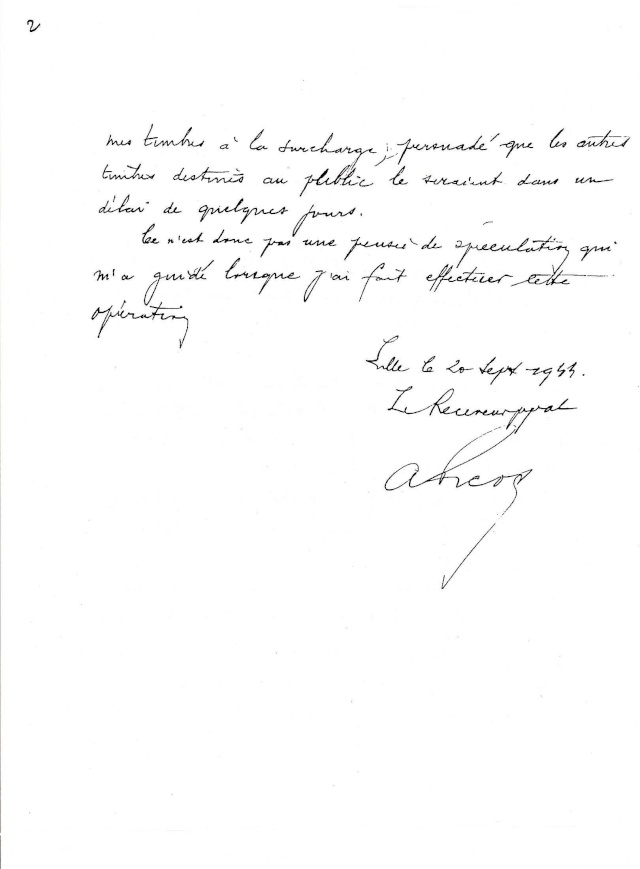 2
mes timbres à la surcharge, persuadé que les autres
timbres destinés au public le seraient dans un
délai de quelques jours.
Ce n'est donc pas une pensée de spéculation qui
m'a guidé lorsque j'ai fait effectuer cette
opération
Lille le 20 Sept 1944.
Le Receveur ppal